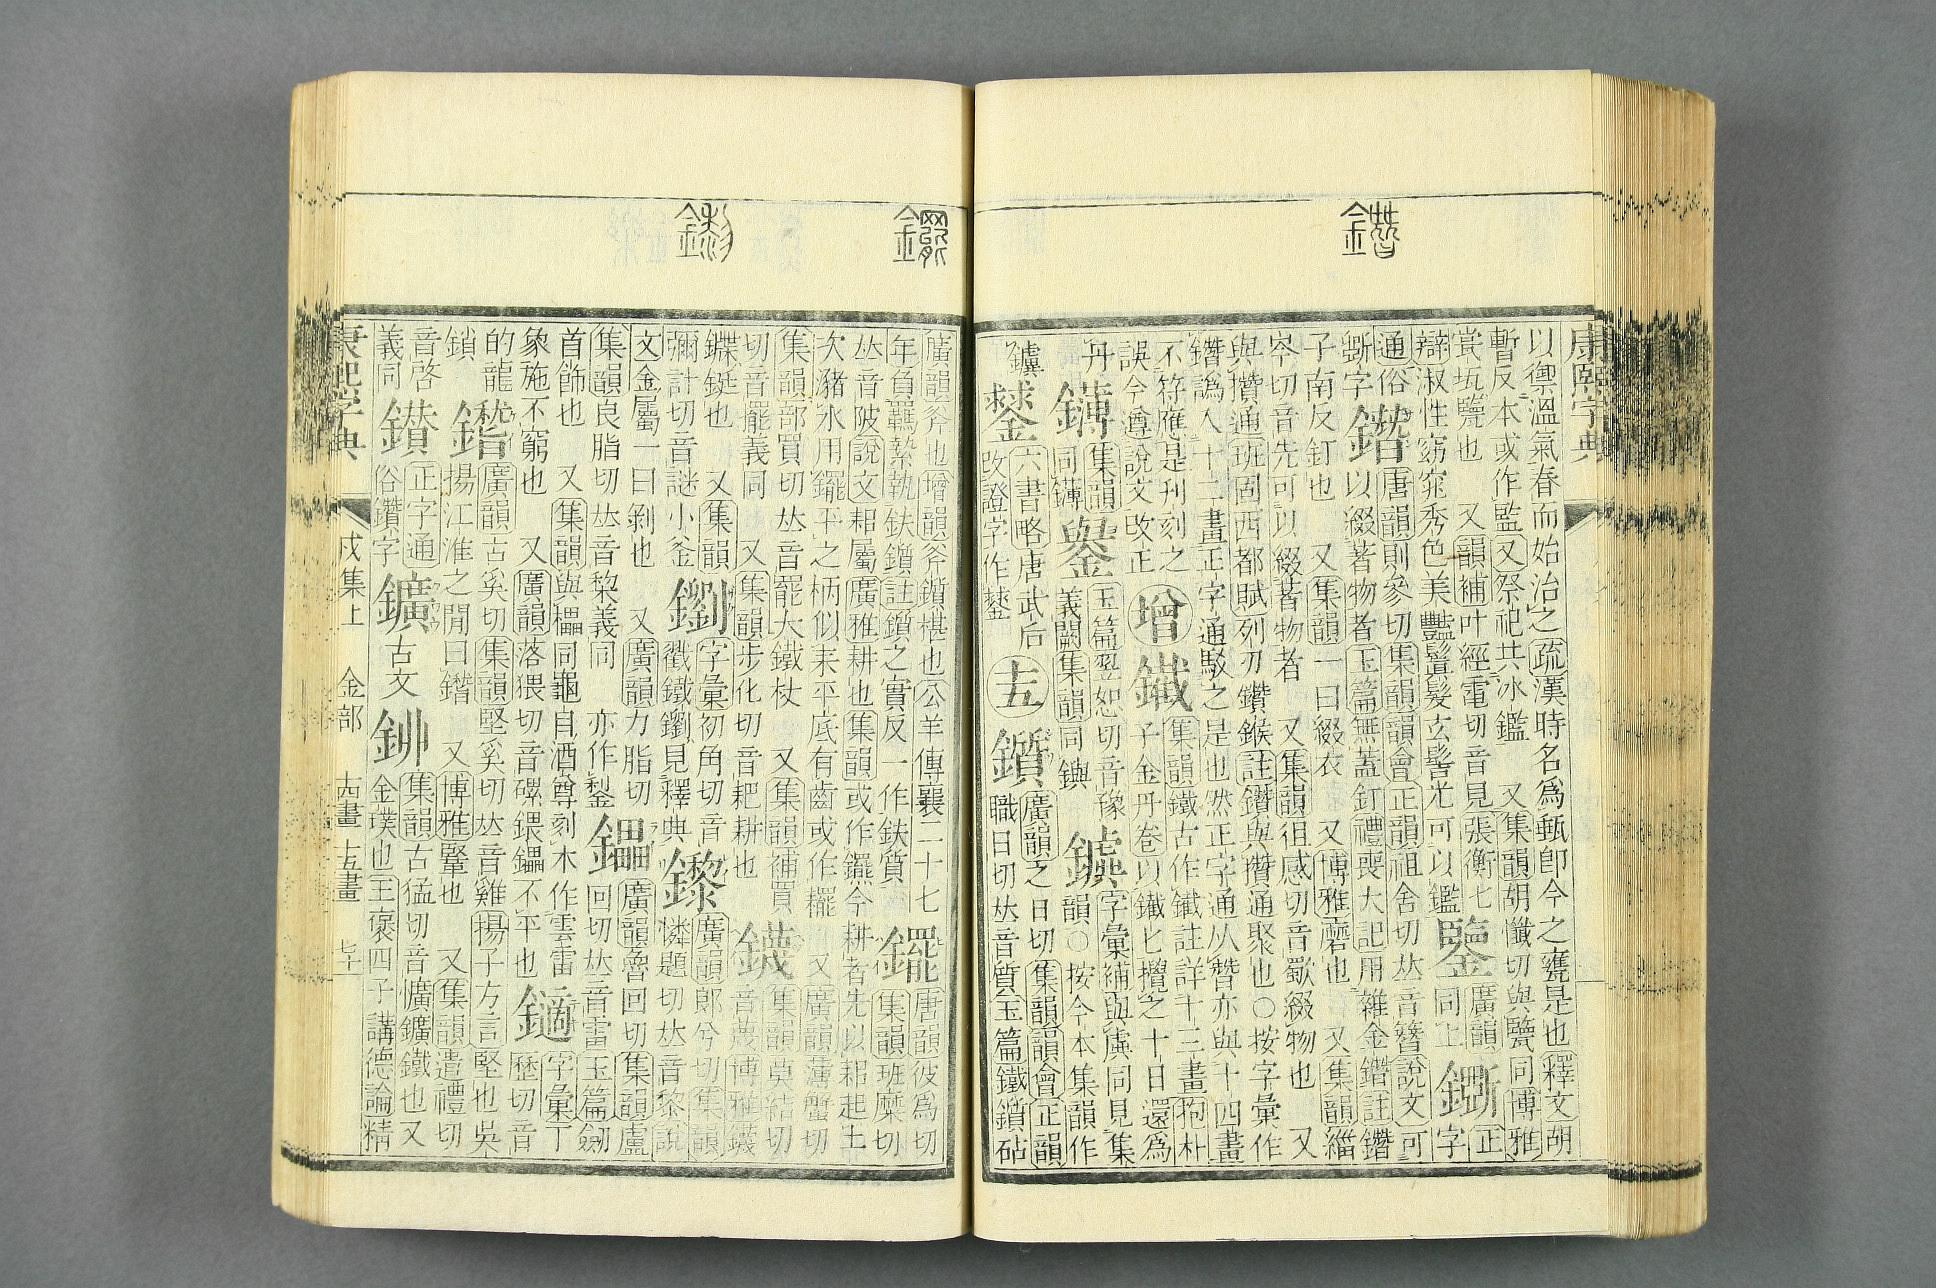 康熙字典
以禦溫氣春而始治之疏漢時名爲甀卽今之甕是也釋文胡
暫反本或作監又祭祀共冰鑑　又集韻胡懺切與覽同博雅
瓽瓨覽也　又韻補叶經電切音見張衡七
辯淑性窈窕秀色美豔鬒髮玄髻光可以鑑
鑒
廣韻
同上
鐁
正字
通俗
斵字
鐕
唐韻則參切集韻韻會正韻祖含切𠀤音簪說文可
以綴著物者玉篇無蓋釘禮喪大記用雜金鐕註鐕
子南反釘也　又集韻一曰綴衣　又博雅磨也　又集韻緇
岑切音先可以綴著物者　又集韻徂感切音歜綴物也　又
與攢通班固西都賦列刃鑽鍭註鐕與攢通聚也○按字彙作
鐕譌入十二畫正字通駁之是也然正字通从朁亦與十四畫
不符應是刊刻之
誤今遵說文改正
增
鐵
集韻鐵古作鐵註詳十三畫抱朴
子金丹卷以鐵匕攪之十日還爲
丹
集韻
同鎛
玉篇翌恕切音豫
義闕集韻同鐭
鐻
字彙補與虡同見集
韻○按今本集韻作
鐻
六書略唐武后
改證字作
十五
鑕
廣韻之日切集韻韻會正韻
職日切𠀤音質玉篇鐵鑕砧
廣韻斧也增韻斧鑕椹也公羊傳襄二十七
年負羈縶執鈇鑕註鑕之實反一作鈇質
䥯
唐韻彼爲切集韻班糜切
𠀤音陂說文耜屬廣雅耕也集韻或作䥴今耕者先以耜起土
次瀦水用䥯平之柄似耒平底有齒或作䎱　又廣韻薄蟹切
集韻部買切𠀤音罷大鐵杖　又集韻補買
切音擺義同　又集韻步化切音耙耕也
鑖
集韻莫結切
音蔑博雅鑖
鏶鋌也　又集韻
彌計切音謎小釜
鑡
字彙初角切音
戳鐵鑡見釋典
鑗
廣韻郞兮切集韻
憐題切𠀤音黎說
文金屬一曰剝也　又廣韻力脂切
集韻良脂切𠀤音黎義同　亦作𨤍
鑘
廣韻魯回切集韻盧
回切𠀤音雷玉篇劒
首飾也　又集韻與櫑同龜目酒尊刻木作雲雷
象施不窮也　又廣韻落猥切音磥鍡鑘不平也
字彙丁
歷切音
的龍
鎖
廣韻古奚切集韻堅奚切𠀤音雞揚子方言堅也吳
揚江淮之閒曰鍇　又博雅鞏也　又集韻遣禮切
音啓
義同
鑚
正字通
俗鑽字
鑛
古文
鉚
集韻古猛切音懭鑛鐵也又
金璞也王褒四子講德論精
康熙字典
戌集上
金部
十四畫
十五畫
七十一